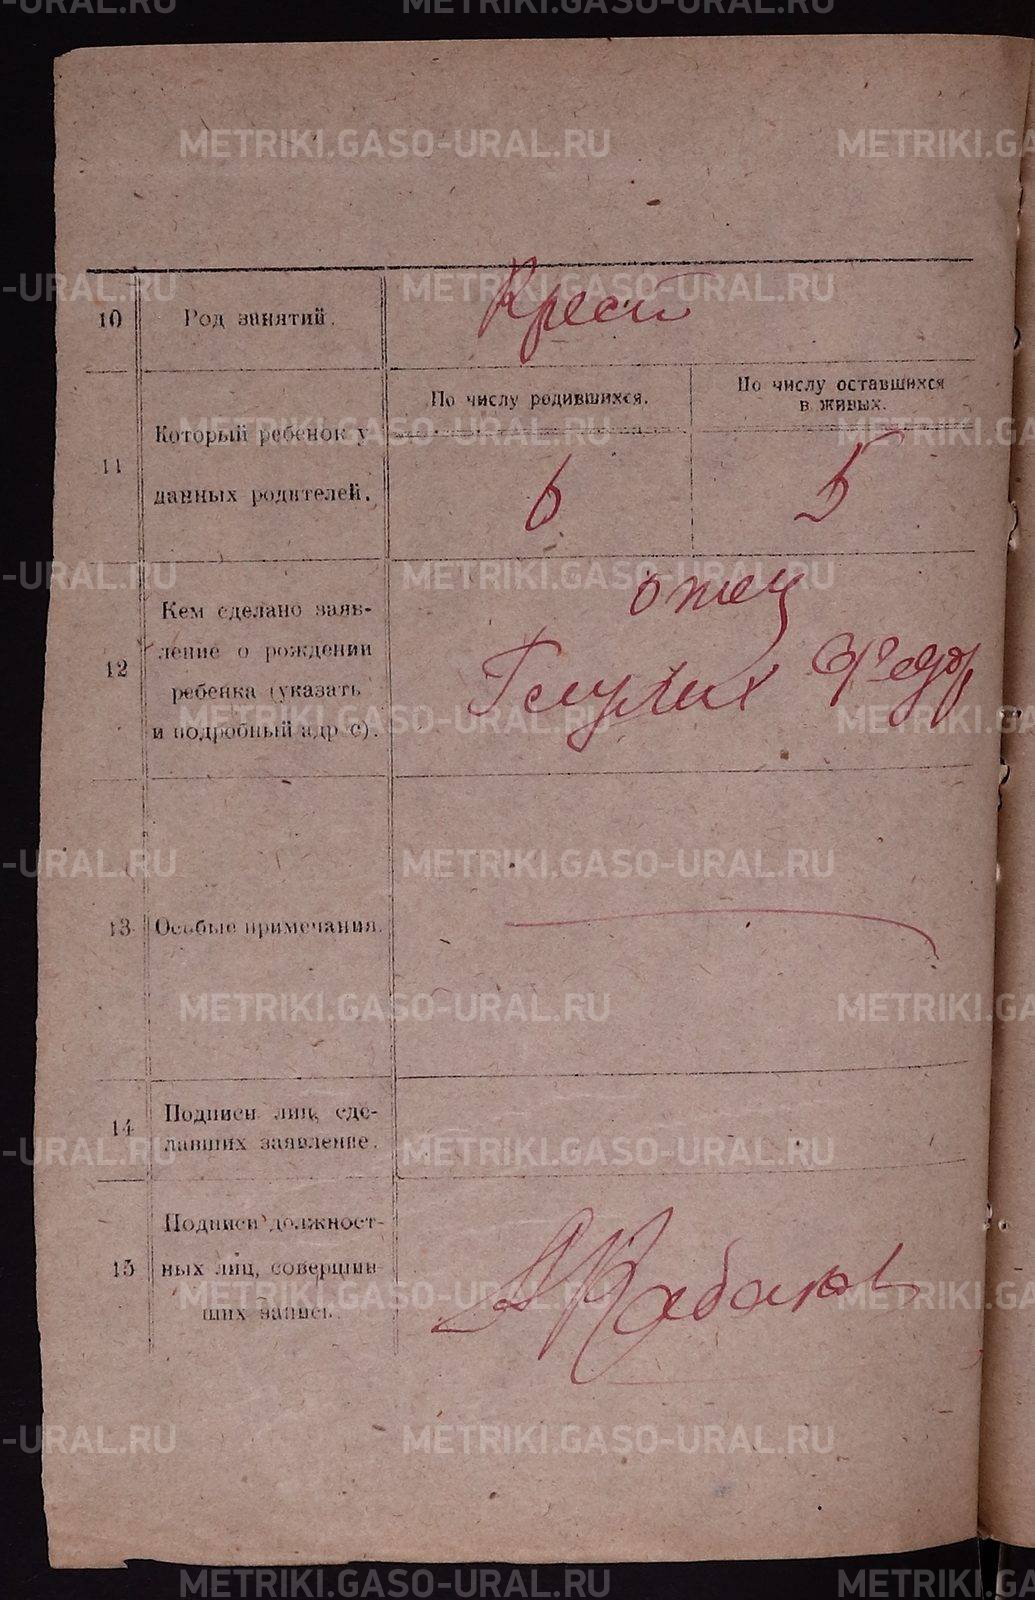 METRIKI.GASO-URAL.RU
10
Род занятий.
Крест
11
Который ребенок у
данных родителей.
По числу родившихся.
6
По числу оставшихся
в живых.
5
12
Кем сделано заяв-
ление о рождении
ребенка (указать
и подробный адр с).
отец
Федор
13
Особые примечания.
14
Подписи лиц, сде-
лавших заявление.
15
Подписи должност-
ных лиц, совершив-
ших запись.